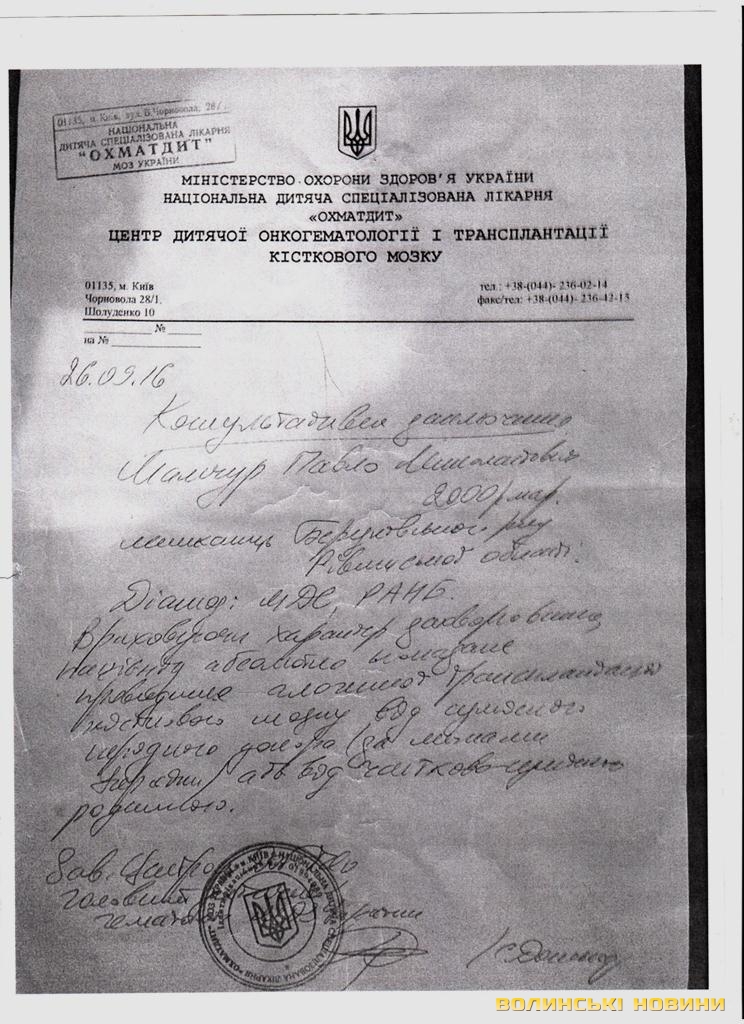 01135, м. Київ, вул. В.Чорновола, 28/1
НАЦІОНАЛЬНА
ДИТЯЧА СПЕЦІАЛІЗОВАНА ЛІКАРНЯ
"ОХМАТДИТ"
МОЗ УКРАЇНИ
МІНІСТЕРСТВО ОХОРОНИ ЗДОРОВ'Я УКРАЇНИ
НАЦІОНАЛЬНА ДИТЯЧА СПЕЦІАЛІЗОВАНА ЛІКАРНЯ
«ОХМАТДИТ»
ЦЕНТР ДИТЯЧОЇ ОНКОГЕМАТОЛОГІЇ І ТРАНСПЛАНТАЦІЇ
КІСТКОВОГО МОЗКУ
01135, м. Київ
Чорновола 28/1,
Шолуденко 10
тел.: +38-(044)- 236-02-14
факс/тел: +38-(044)- 236-42-13
№
на №
26.09.16
Консультативне заключення
Павло Миколайович
2000 р.нар.
мешканець р-ну
Рівненської області.
Діагноз: МДС, РАНБ.
Враховуючи характер захворювання,
пацієнту абсолютно показане
проведення алогенної трансплантації
кісткового мозку від сумісного
неродинного донора (за межами
України) або від частково-сумісного
родинного.
Зав. Центро
головний
гемато
ВОЛИНСЬКІ НОВИНИ